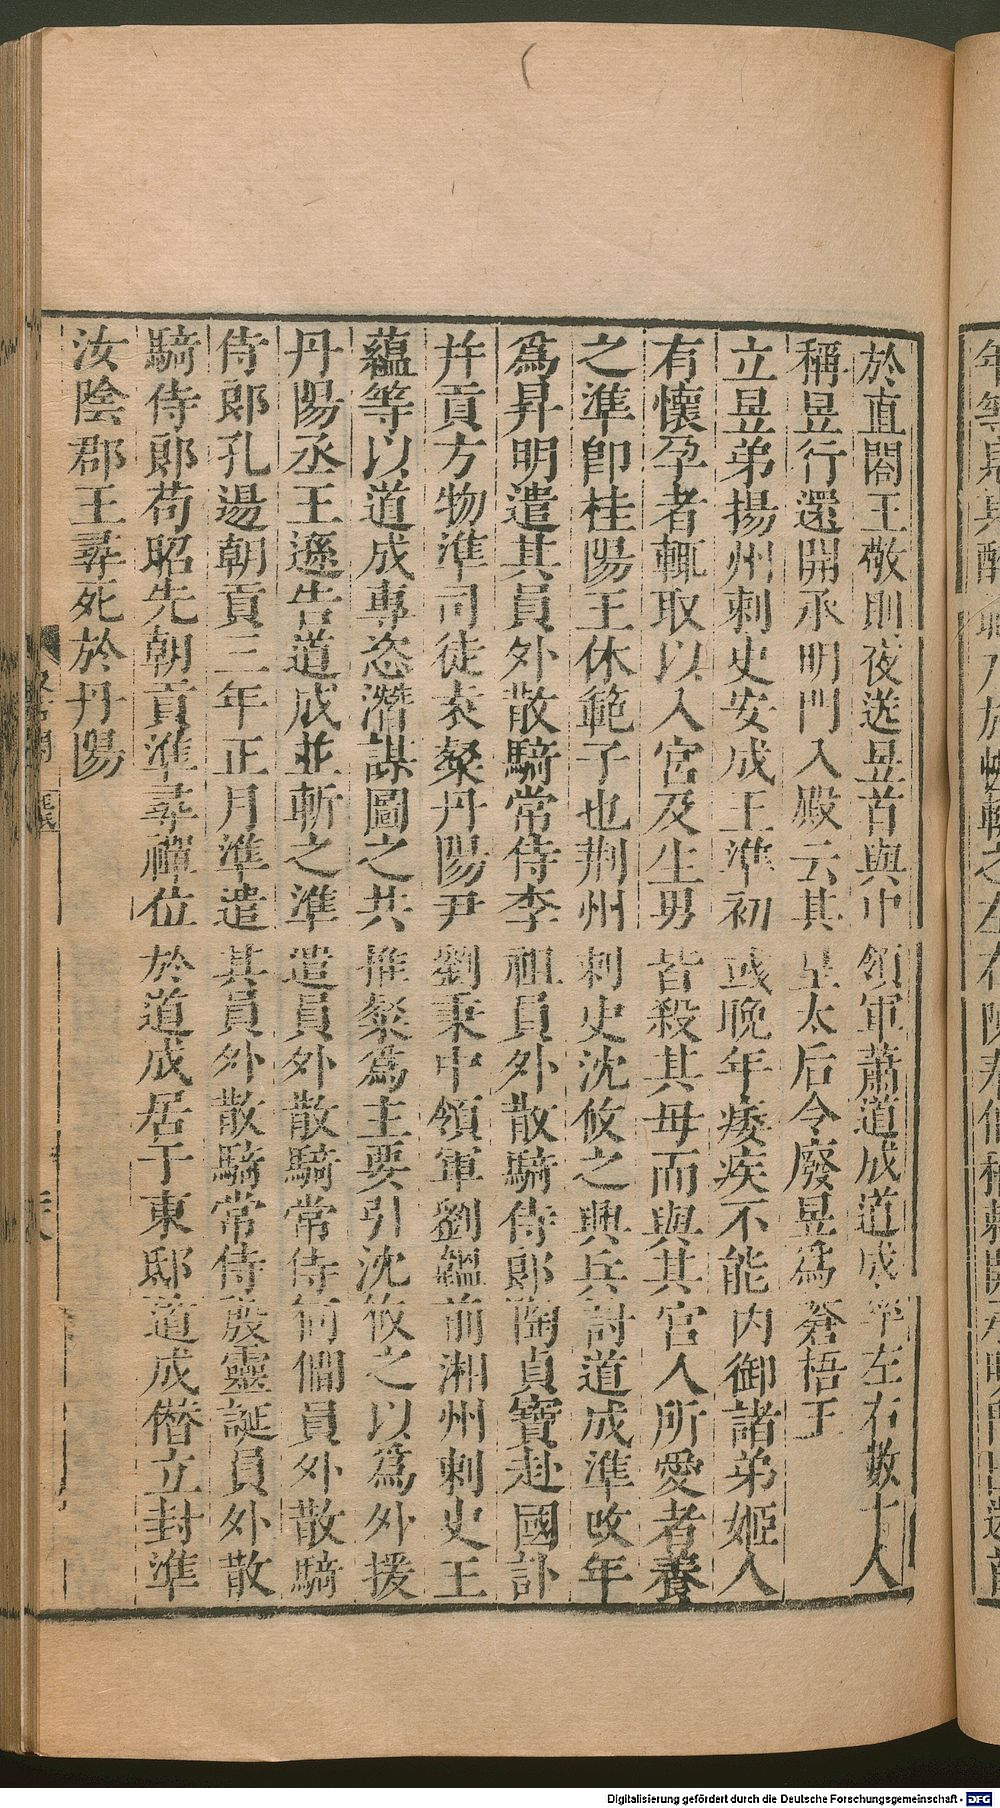 於直閤王敬則夜送昱首與中領軍蕭道成道成率左右數十人
稱昱行還開承明門入殿云其皇太后令廢昱爲蒼梧王
立昱弟揚州刺史安成王準初彧晚年痿疾不能內御諸弟姬人
有懷孕者輒取以入宮及生男皆殺其母而與其宮人所愛者養
之準卽桂陽王休範子也荆州刺史沈攸之興兵討道成準改年
爲昇明遣其員外散騎常侍李祖員外散騎侍郎陶貞寶赴國訃
幷貢方物準司徒袁粲丹陽尹劉秉中領軍劉韞前湘州刺史王
蘊等以道成專恣潛謀圖之共推粲爲主要引沈攸之以爲外援
丹陽丞王遜告道成並斬之準遣員外散騎常侍何僩員外散騎
侍郎孔逷朝貢三年正月準遣其員外散騎常侍殷靈誕員外散
騎侍郎苟昭先朝貢準尋禪位於道成居于東邸道成僭立封準
汝陰郡王尋死於丹陽
Digitalisierung gefördert durch die Deutsche Forschungsgemeinschaft - DFG